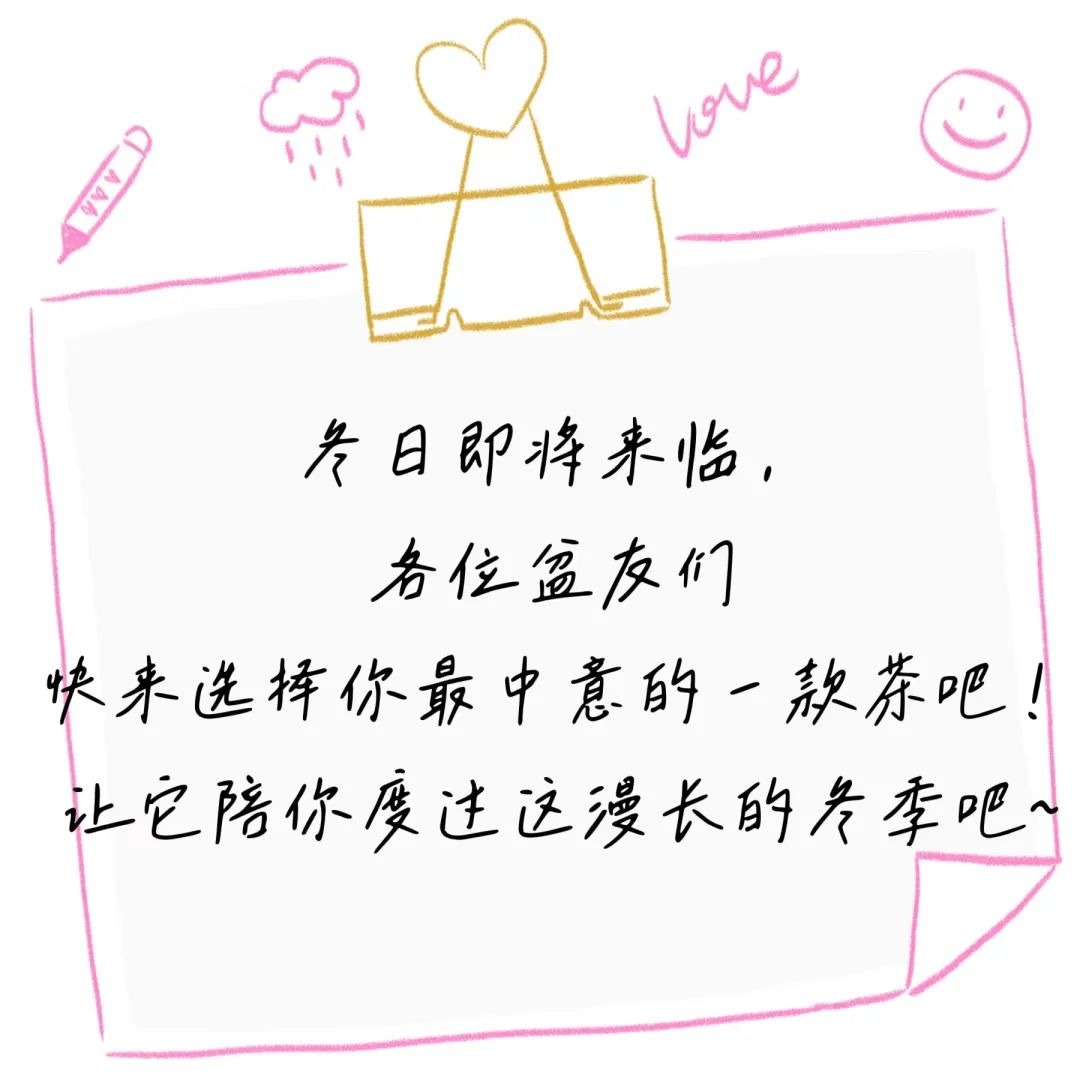 love
冬日即将来临，
各位盆友们
快来选择你最中意的一款茶吧！
让它陪你度过这漫长的冬季吧~